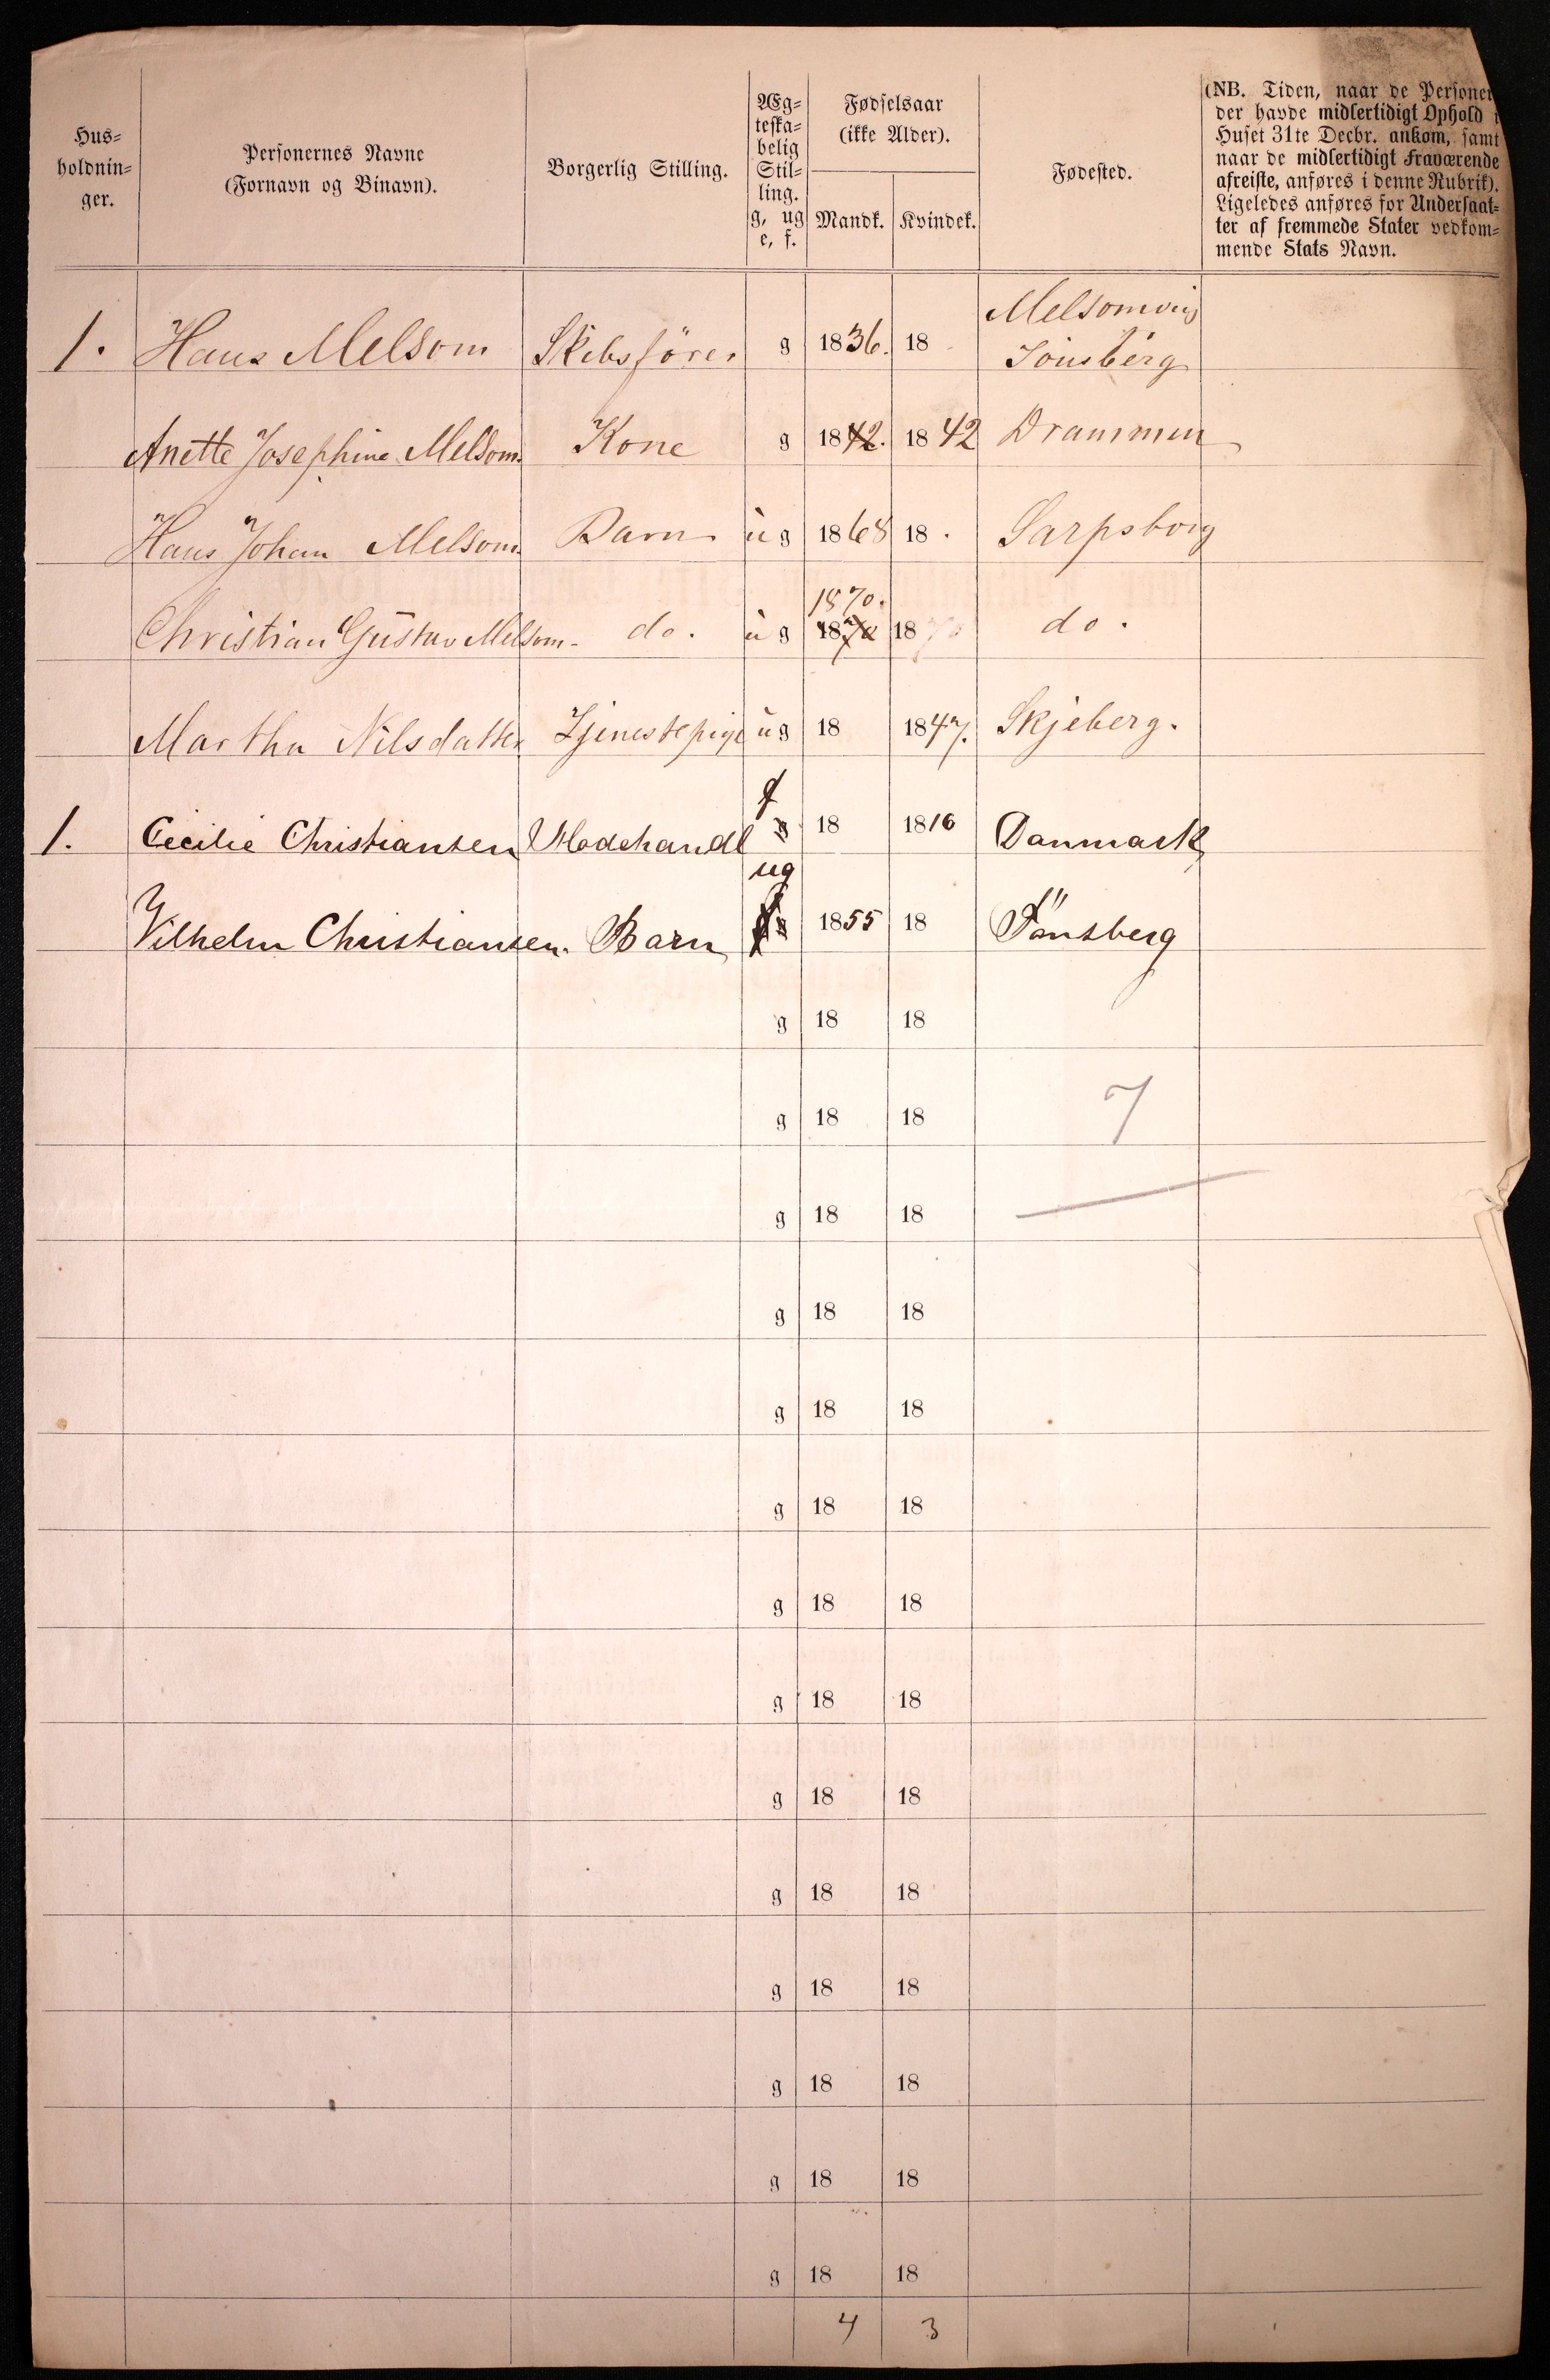 Hus-
holdnin-
ger.
Personernes Navne
(Fornavn og Binavn).
Borgerlig Stilling.
Æg-
teska-
belig
Stil-
ling.
g, ug
e, f.
Fødselsaar
(ikke Alder).
Mandk. Kvindek.
Fødested.
(NB. Tiden, naar de Personer
der havde midlertidigt Ophold i
Huset 31te Decbr. ankom, samt
naar de midlertidigt Fraværende
afreiste, anføres i denne Rubrik).
Ligeledes anføres for Undersaat-
ter af fremmede Stater vedkom-
mende Stats Navn.
Melsomvig
1. Hans Melsom Skibsförer g 1836. 18 Tönsberg
Anette Josephine Melsom. Kone g 1842. 1842 Drammen
Hans Johan Melsom Barn ug 1868 18 Sarpsborg
1870.
Christian Gustav Melsom. do. ug 1870 1870 do.
Martha Nilsdatter Tjenestepige ug 18 1847. Skjeberg.
f
1. Cecilie Christiansen Modehandl g 18 1816 Danmark
ug
Vilhelm Christiansen. Barn f g 1855 18 Tönsberg
g 18 18
g 18 18 7
g 18 18
g 18 18
g 18 18
g 18 18
g 18 18
g 18 18
g 18 18
g 18 18
g 18 18
g 18 18
g 18 18
g 18 18
4 3